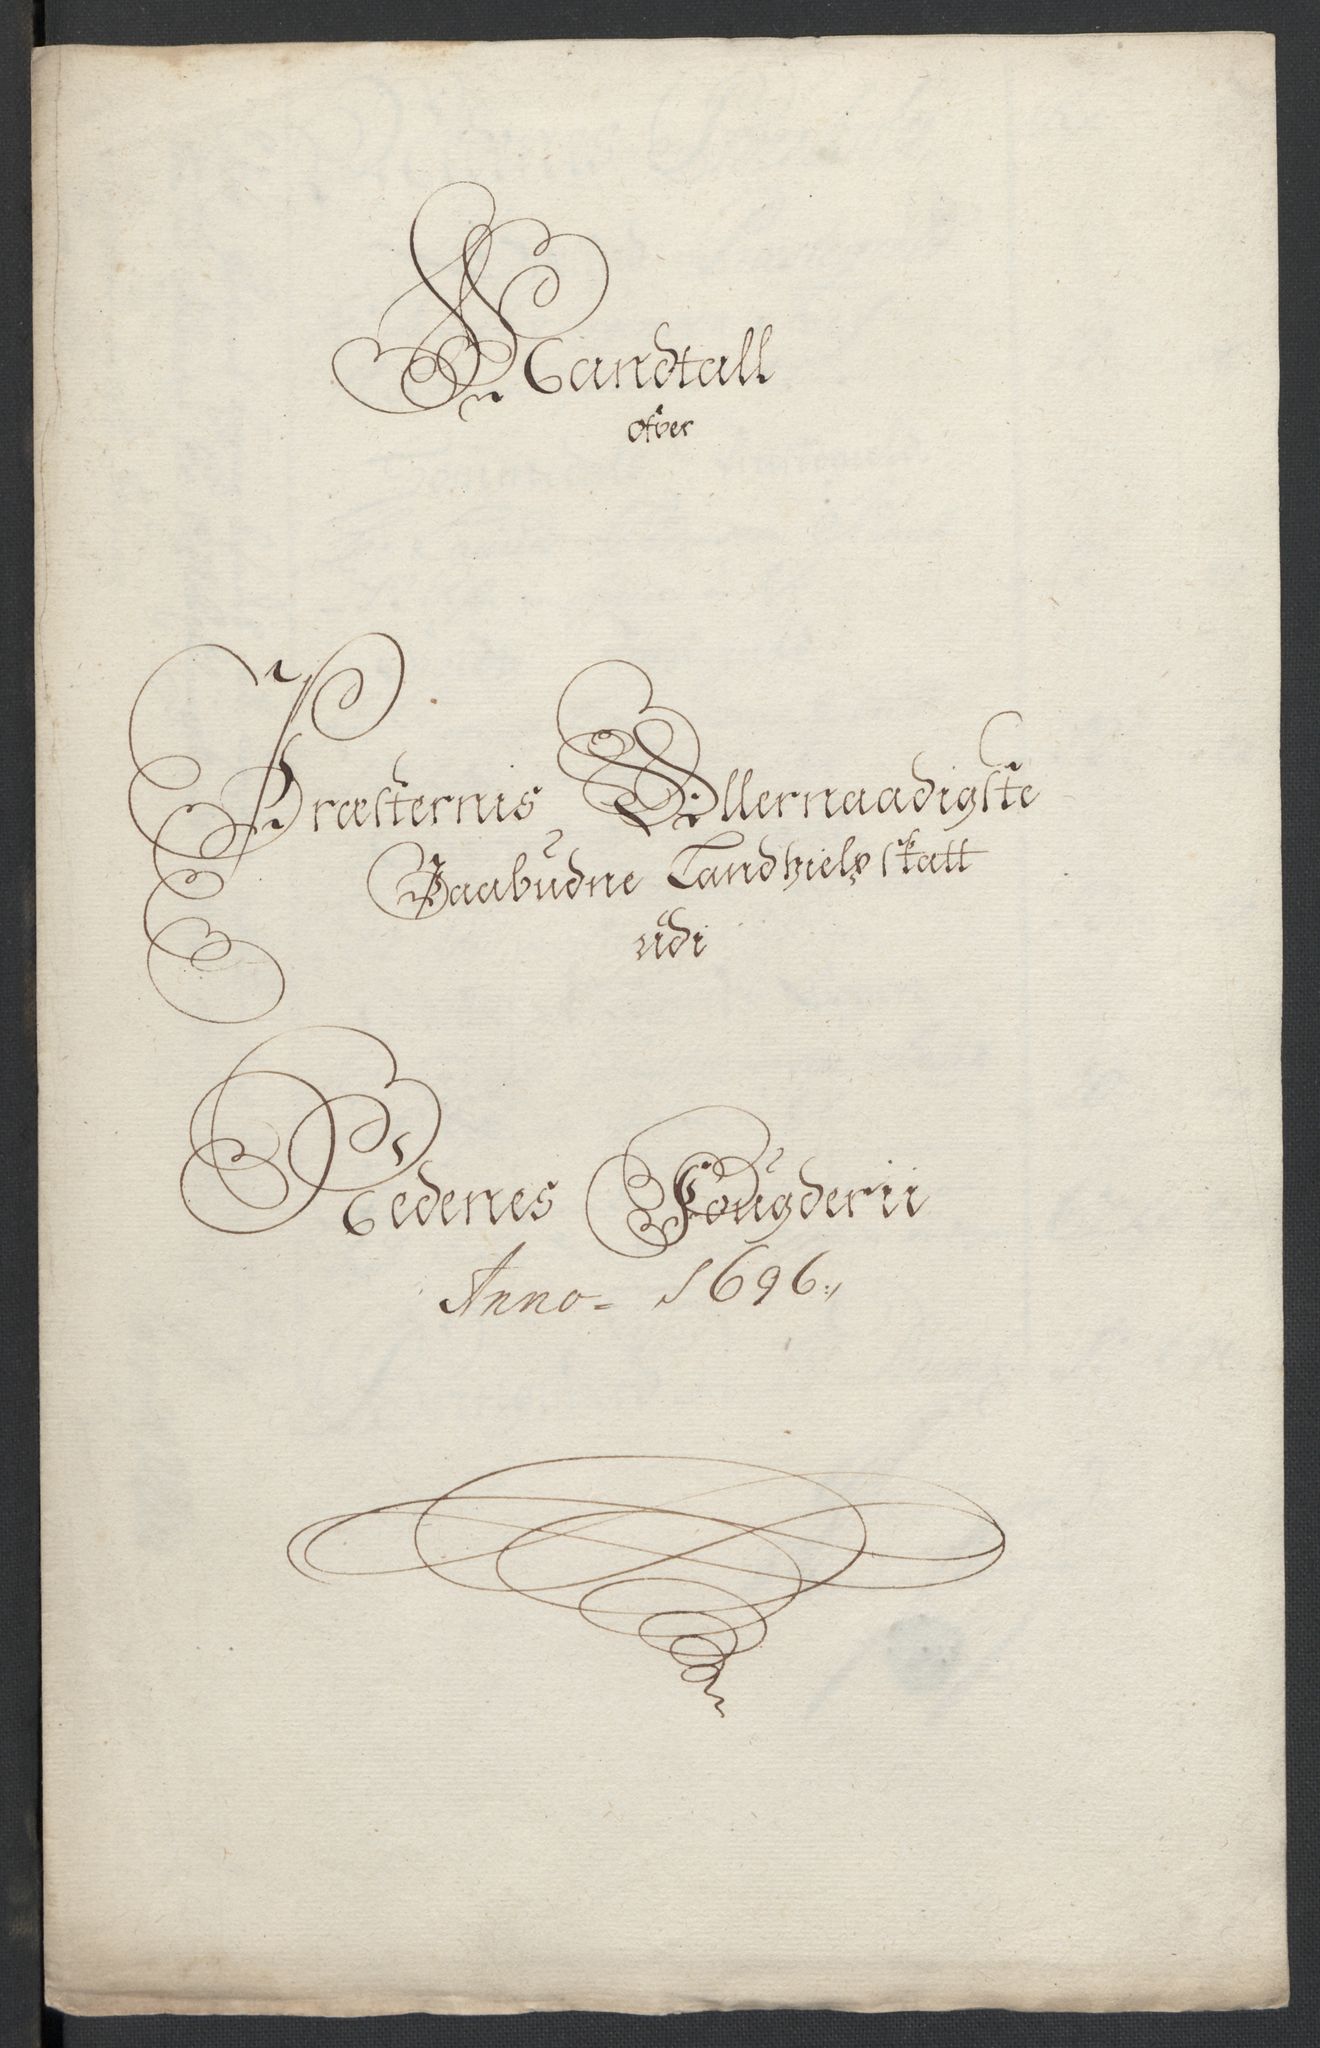 Mandtall
ofver
Præsternis Allernaadigste
Paabudne Landhielp skatt
udi
Nedenes Fougderii
Anno - 1696.